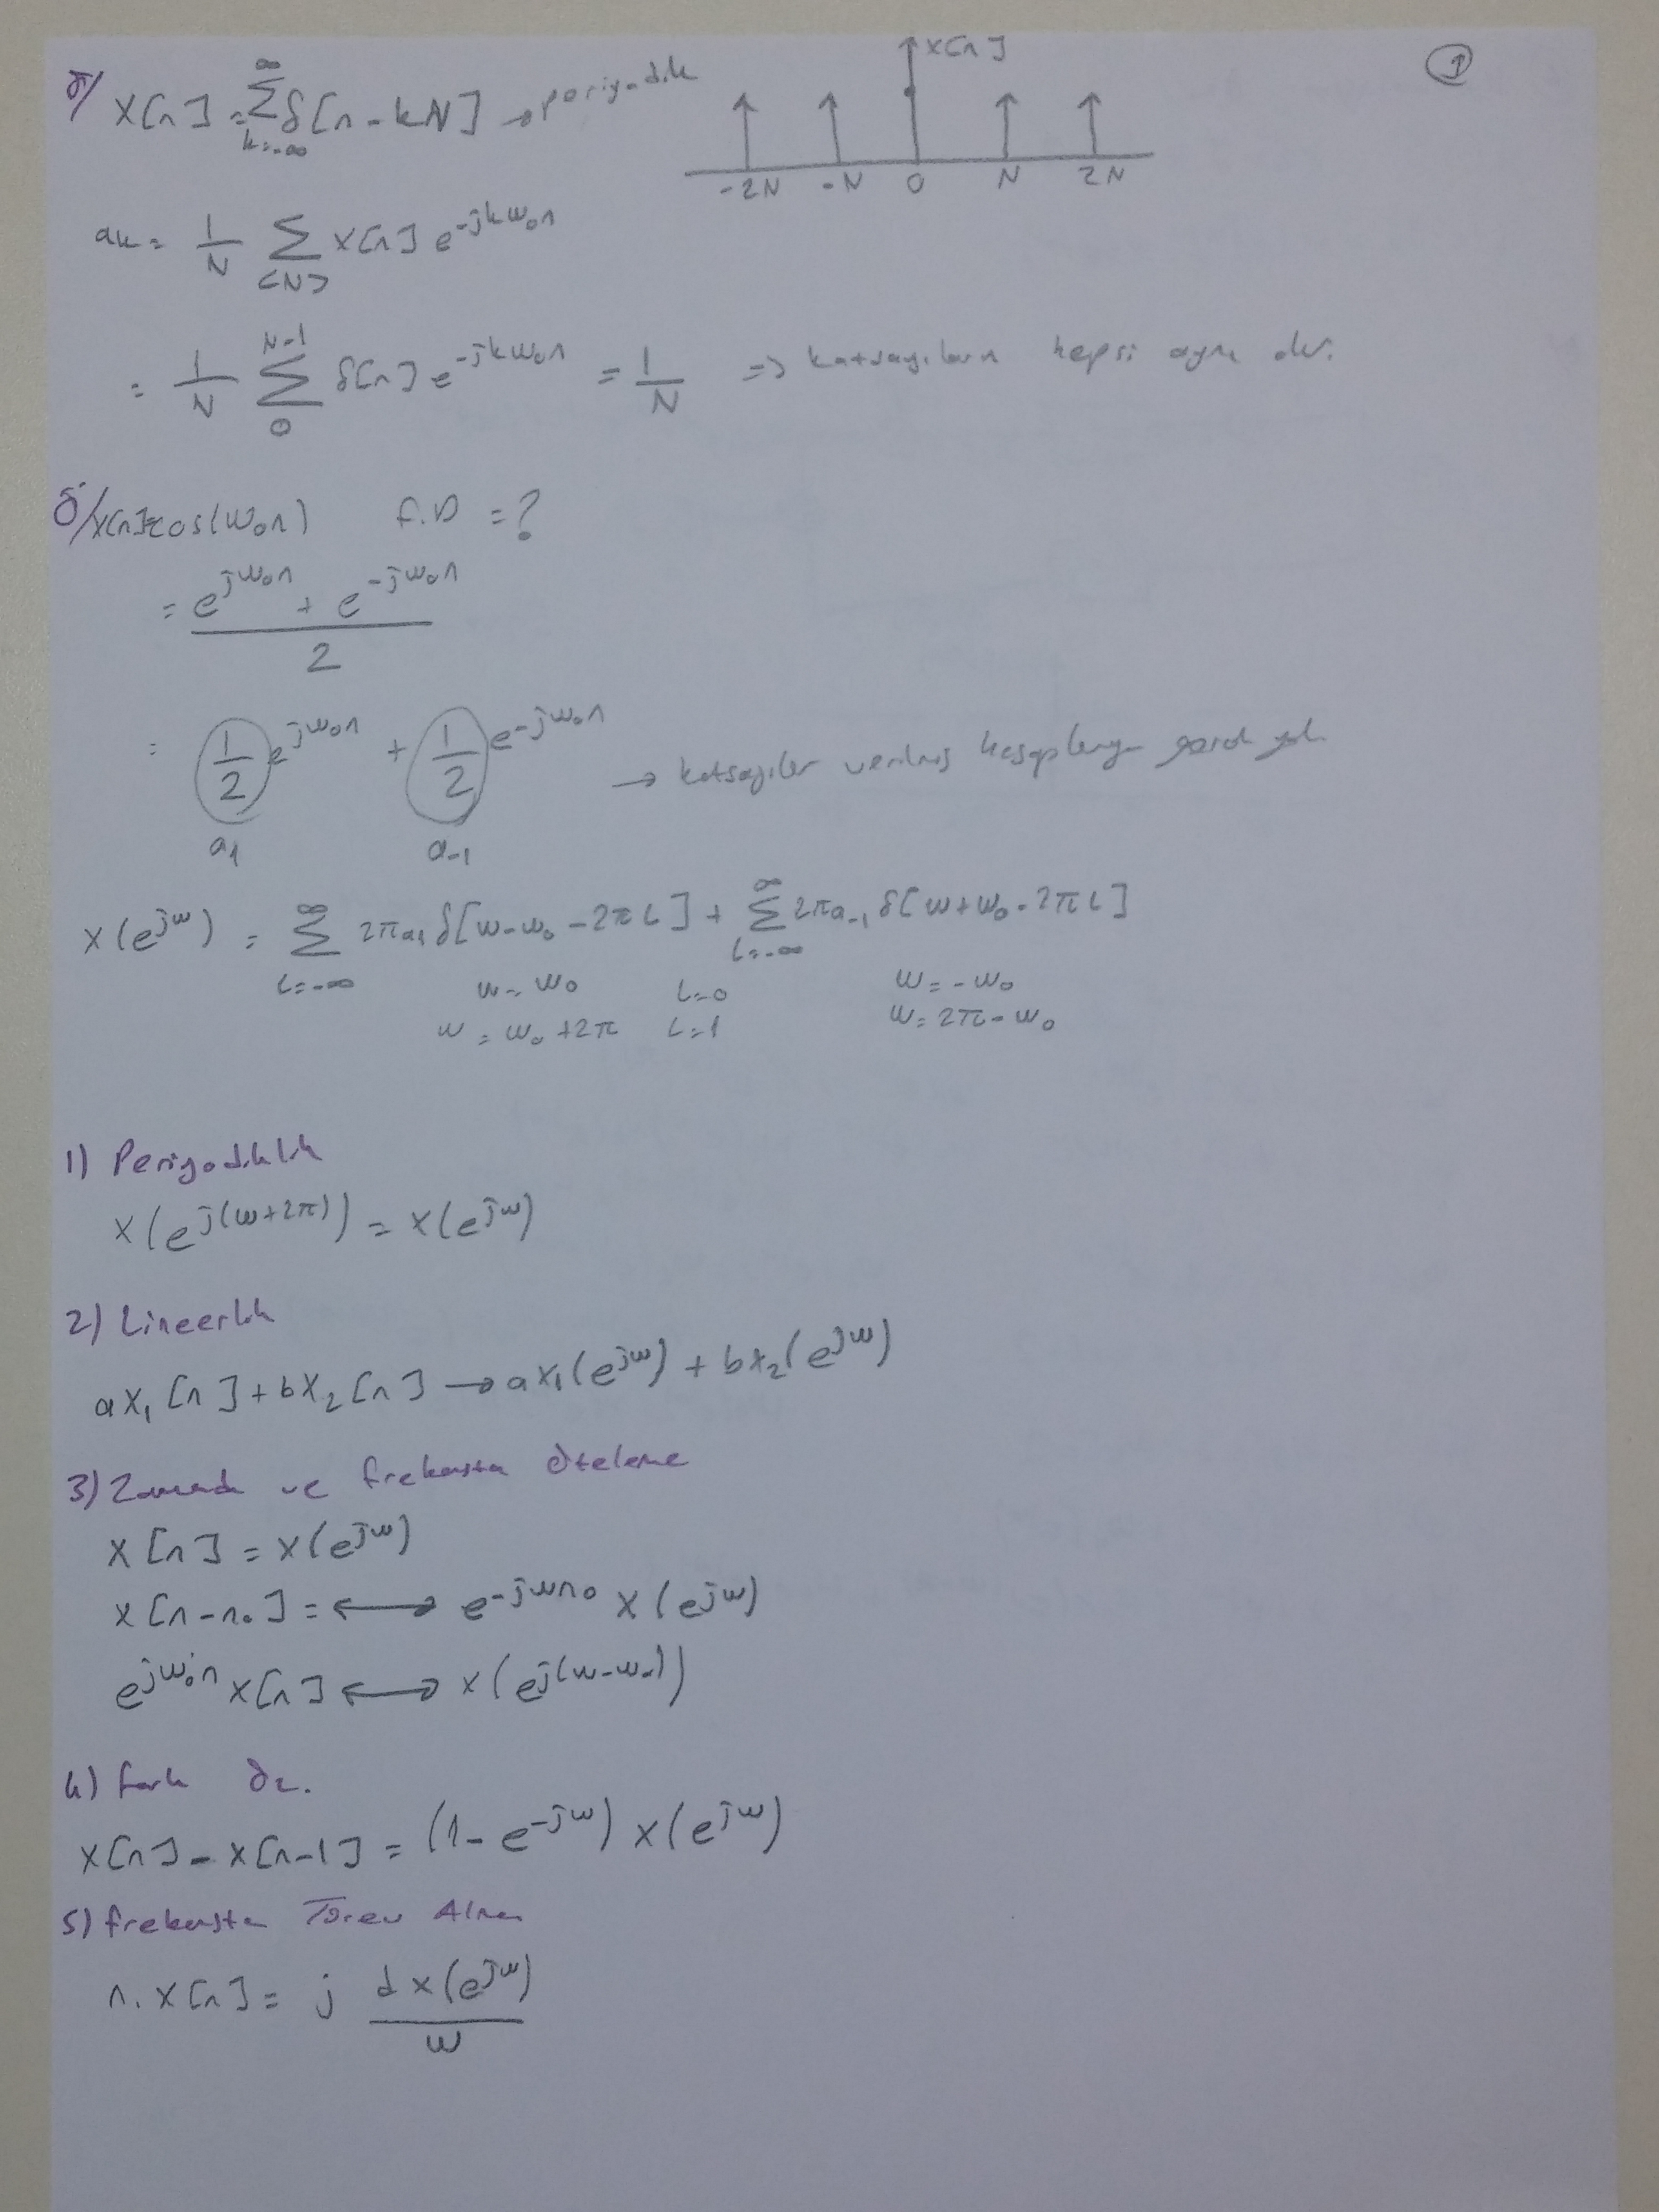 ①
ö/ x[n] = ∑_{k=-∞}^{∞} δ[n-kN] → periyodik
x[n]
-2N -N 0 N 2N
a_k = 1/N ∑_{<N>} x[n] e^{-jkω₀n}
= 1/N ∑_{0}^{N-1} δ[n] e^{-jkω₀n} = 1/N => katsayıların hepsi aynı
ö/ x[n]=cos(ω₀n) F.D = ?
= (e^{jω₀n} + e^{-jω₀n}) / 2
= 1/2 e^{jω₀n} + 1/2 e^{-jω₀n} → katsayılar verilmiş hesaplamaya gerek yok
a₁ a₋₁
x(e^{jω}) = ∑_{L=-∞}^{∞} 2πa₁ δ[ω-ω₀-2πL] + ∑_{L=-∞}^{∞} 2πa₋₁ δ[ω+ω₀-2πL]
ω=ω₀ L=0 ω=-ω₀
ω=ω₀+2π L=1 ω=2π-ω₀
1) Periyodiklik
x(e^{j(ω+2π)}) = x(e^{jω})
2) Lineerlik
ax₁[n]+bx₂[n] → ax₁(e^{jω}) + bx₂(e^{jω})
3) Zamanda ve frekansta öteleme
x[n] = x(e^{jω})
x[n-n₀] = ↔ e^{-jωn₀} x(e^{jω})
e^{jω₀n} x[n] ↔ x(e^{j(ω-ω₀)})
4) Fark Dz.
x[n] - x[n-1] = (1-e^{-jω}) x(e^{jω})
5) frekansta Türev Alma
n.x[n] = j dx(e^{jω})/ω